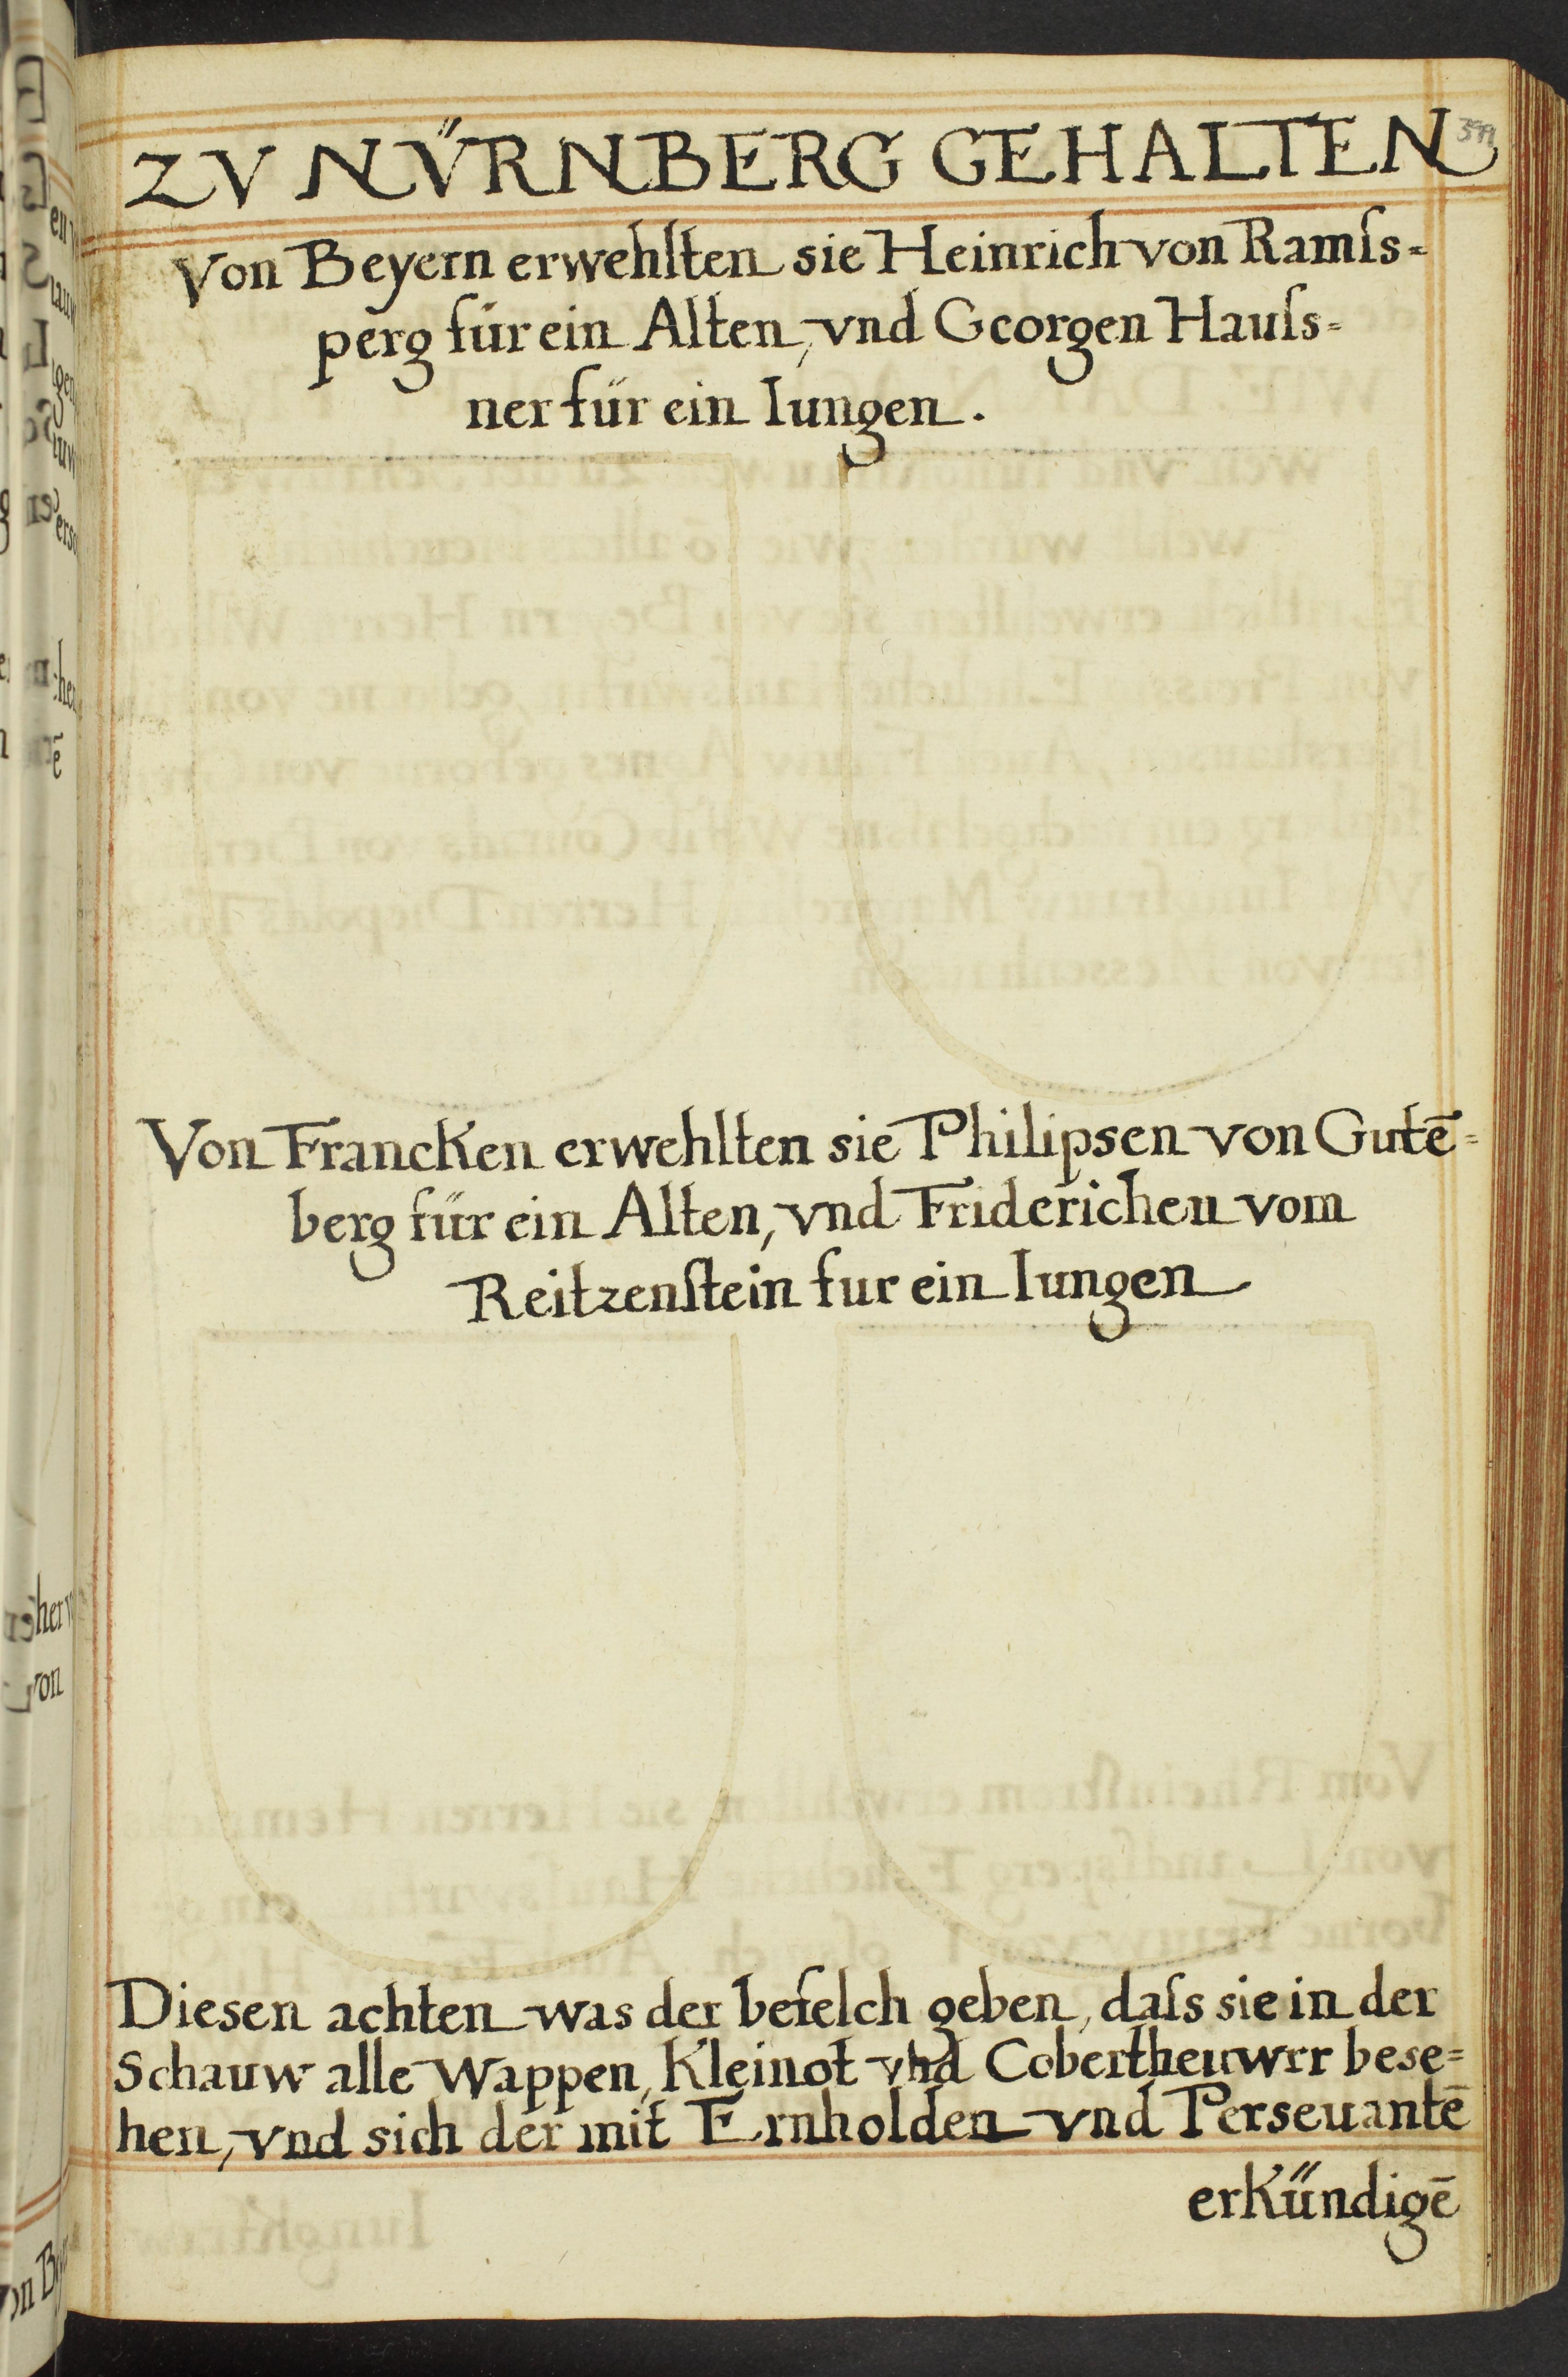 ZV NÜRNBERG GEHALTEN
Von Beyern erwehlten sie Heinrich von Ramſs=
perg für ein Alten, vnd Georgen Hauſs=
ner für ein Iungen.
Von Francken erwehlten sie Philipsen von Gutē=
berg für ein Alten, vnd Friderichen vom
Reitzenſtein fur ein Iungen
Diesen achten was der befelch geben, daſs sie in der
Schauw alle Wappen, Kleinot vnd Cobertheuwrr bese=
hen, vnd sich der mit Ernholden vnd Perseuantē
erKündigē